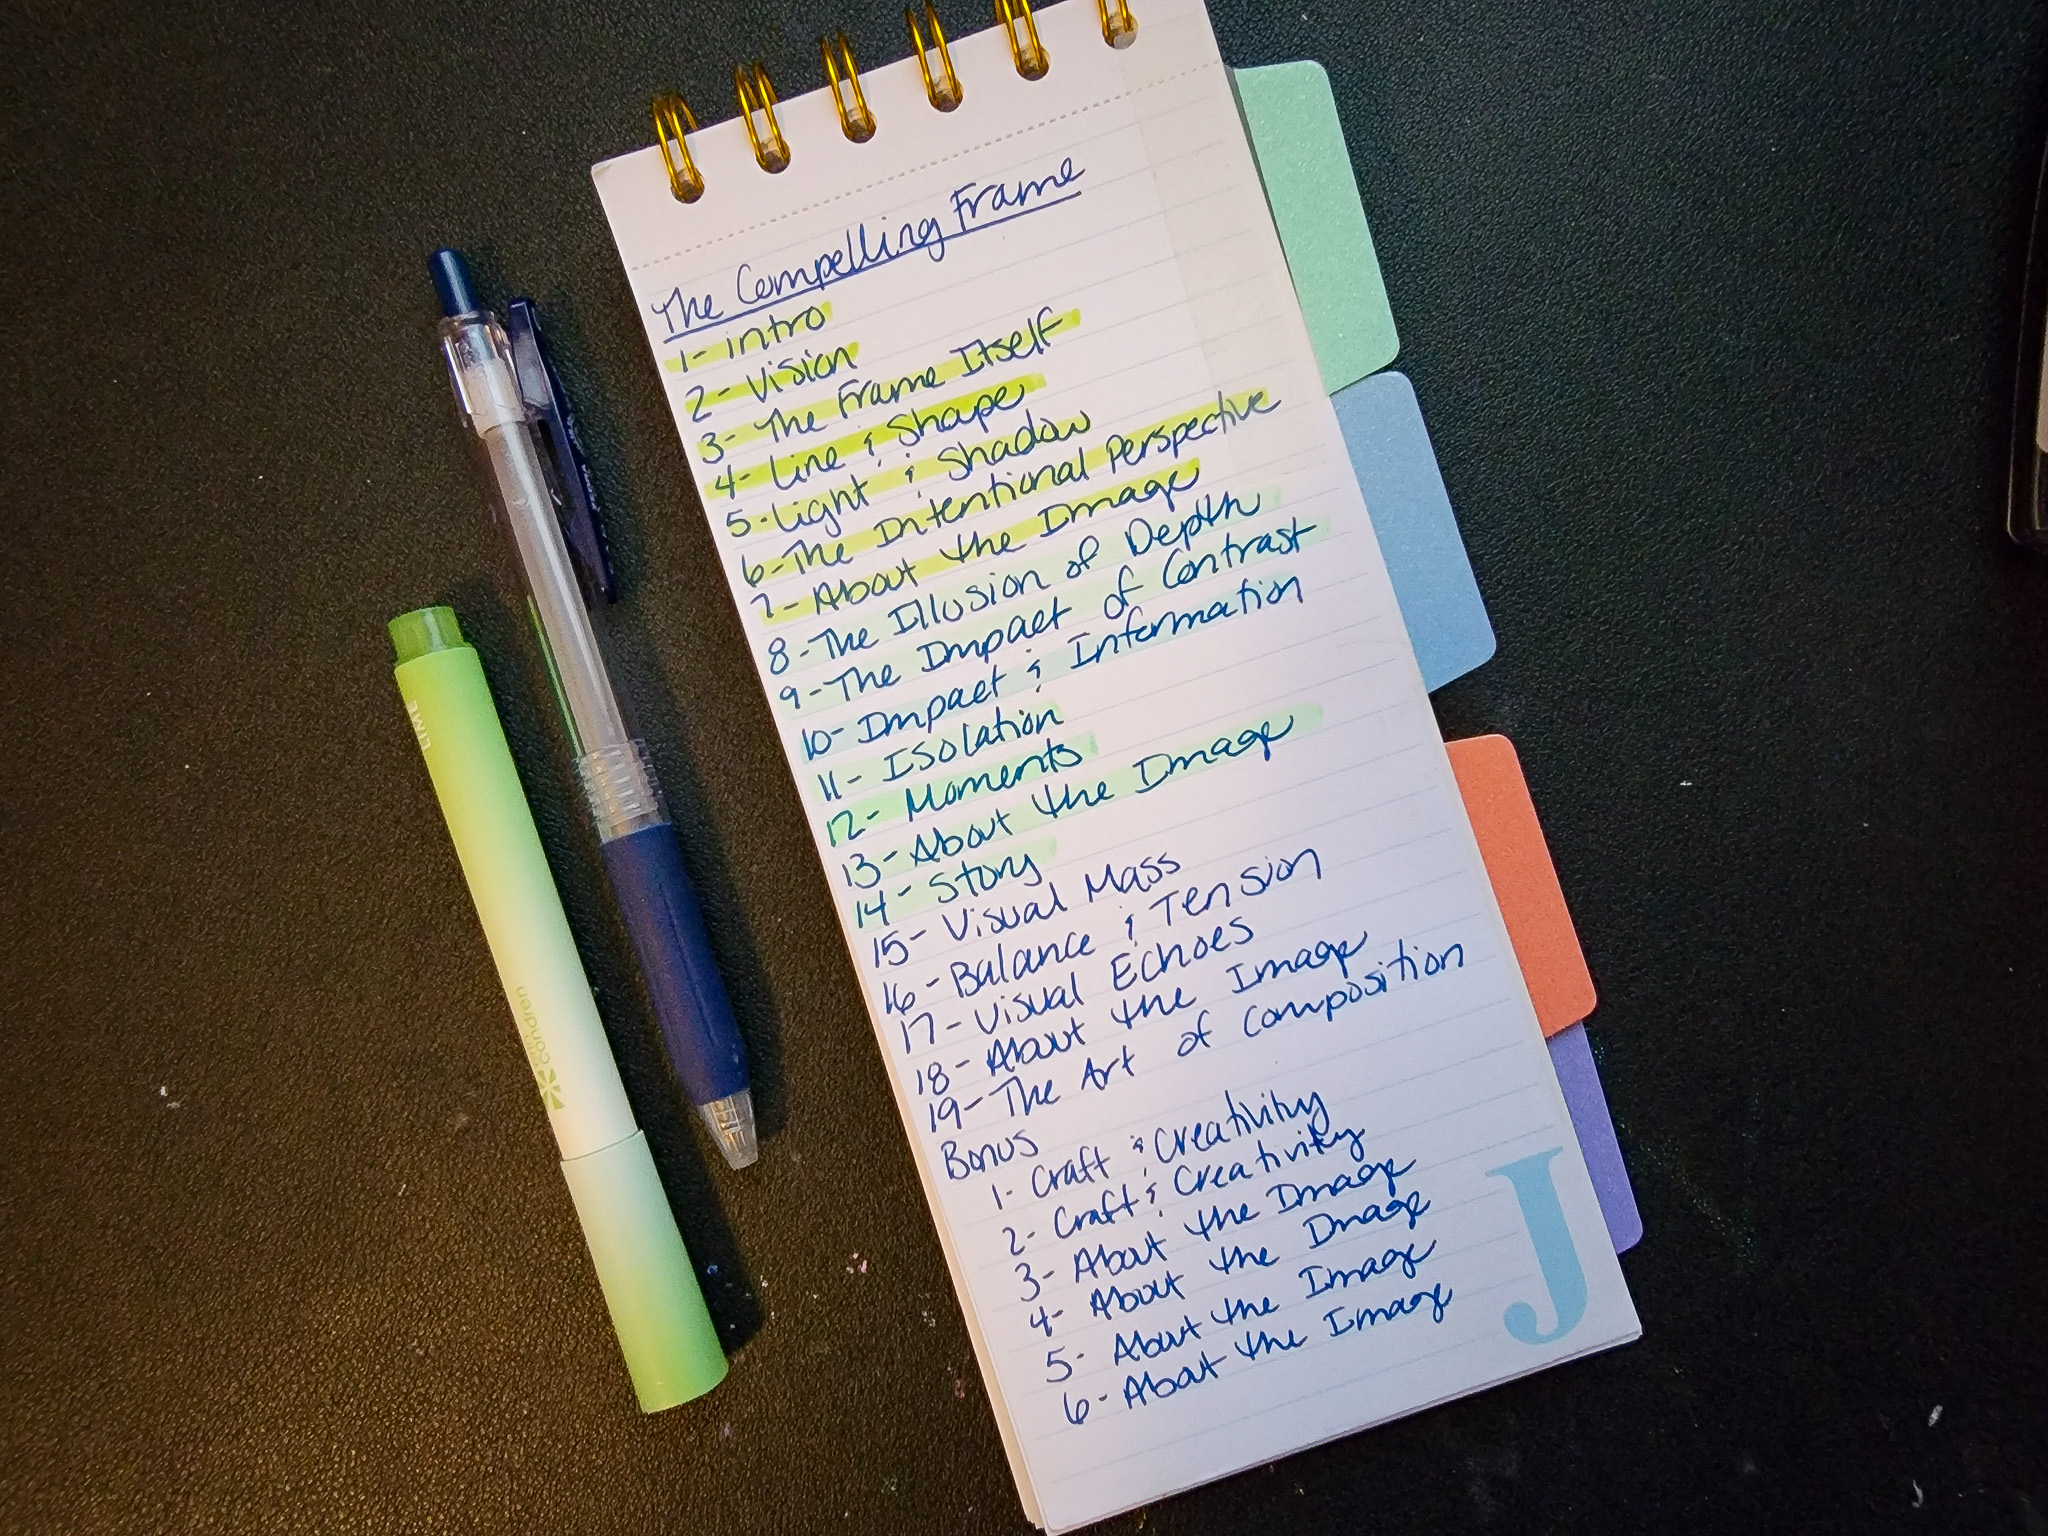 The Compelling Frame
1- intro
2- Vision
3- The Frame Itself
4- Line & Shape
5- Light & Shadow
6- The Intentional Perspective
7- About the Image
8- The Illusion of Depth
9- The Impact of Contrast
10- Impact & Information
11- Isolation
12- Moments
13- About the Image
14- Story
15- Visual Mass
16- Balance & Tension
17- Visual Echoes
18- About the Image
19- The Art of Composition
Bonus
1- Craft & Creativity
2- Craft & Creativity
3- About the Image
4- About the Image
5- About the Image
6- About the Image
J
LIME
condren